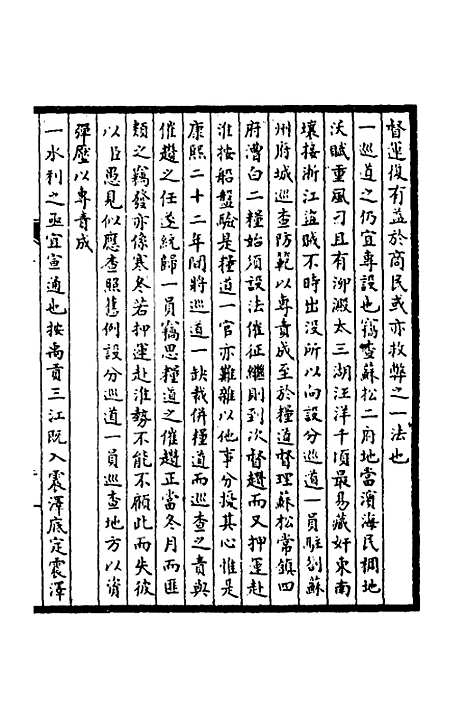 督運復有益於商民或亦救弊之一法也
一巡道之仍宜專設也竊查蘇松二府地當濱海民稠地
沃賦重風刁且有泖澱太三湖汪洋千頃最易藏奸東南
壤接浙江盜賊不時出沒所以向設分巡道一員駐劄蘇
州府城巡查防範以專責成至於糧道督理蘇松常鎮四
府漕白二糧始須設法催征繼則到次督趲而又押運赴
淮按船盤驗是糧道一官亦難雜以他事分授其心惟是
康熙二十二年間將巡道一缺裁併糧道而巡查之責與
催趲之任遂統歸一員竊思糧道之催趲正當冬月而匪
類之竊發亦係寒冬若押運赴淮勢不能不顧此而失彼
以臣愚見似應查照舊例設分巡道一員巡查地方以資
彈壓以專責成
一水利之亟宜宣通也按禹貢三江既入震澤底定震澤